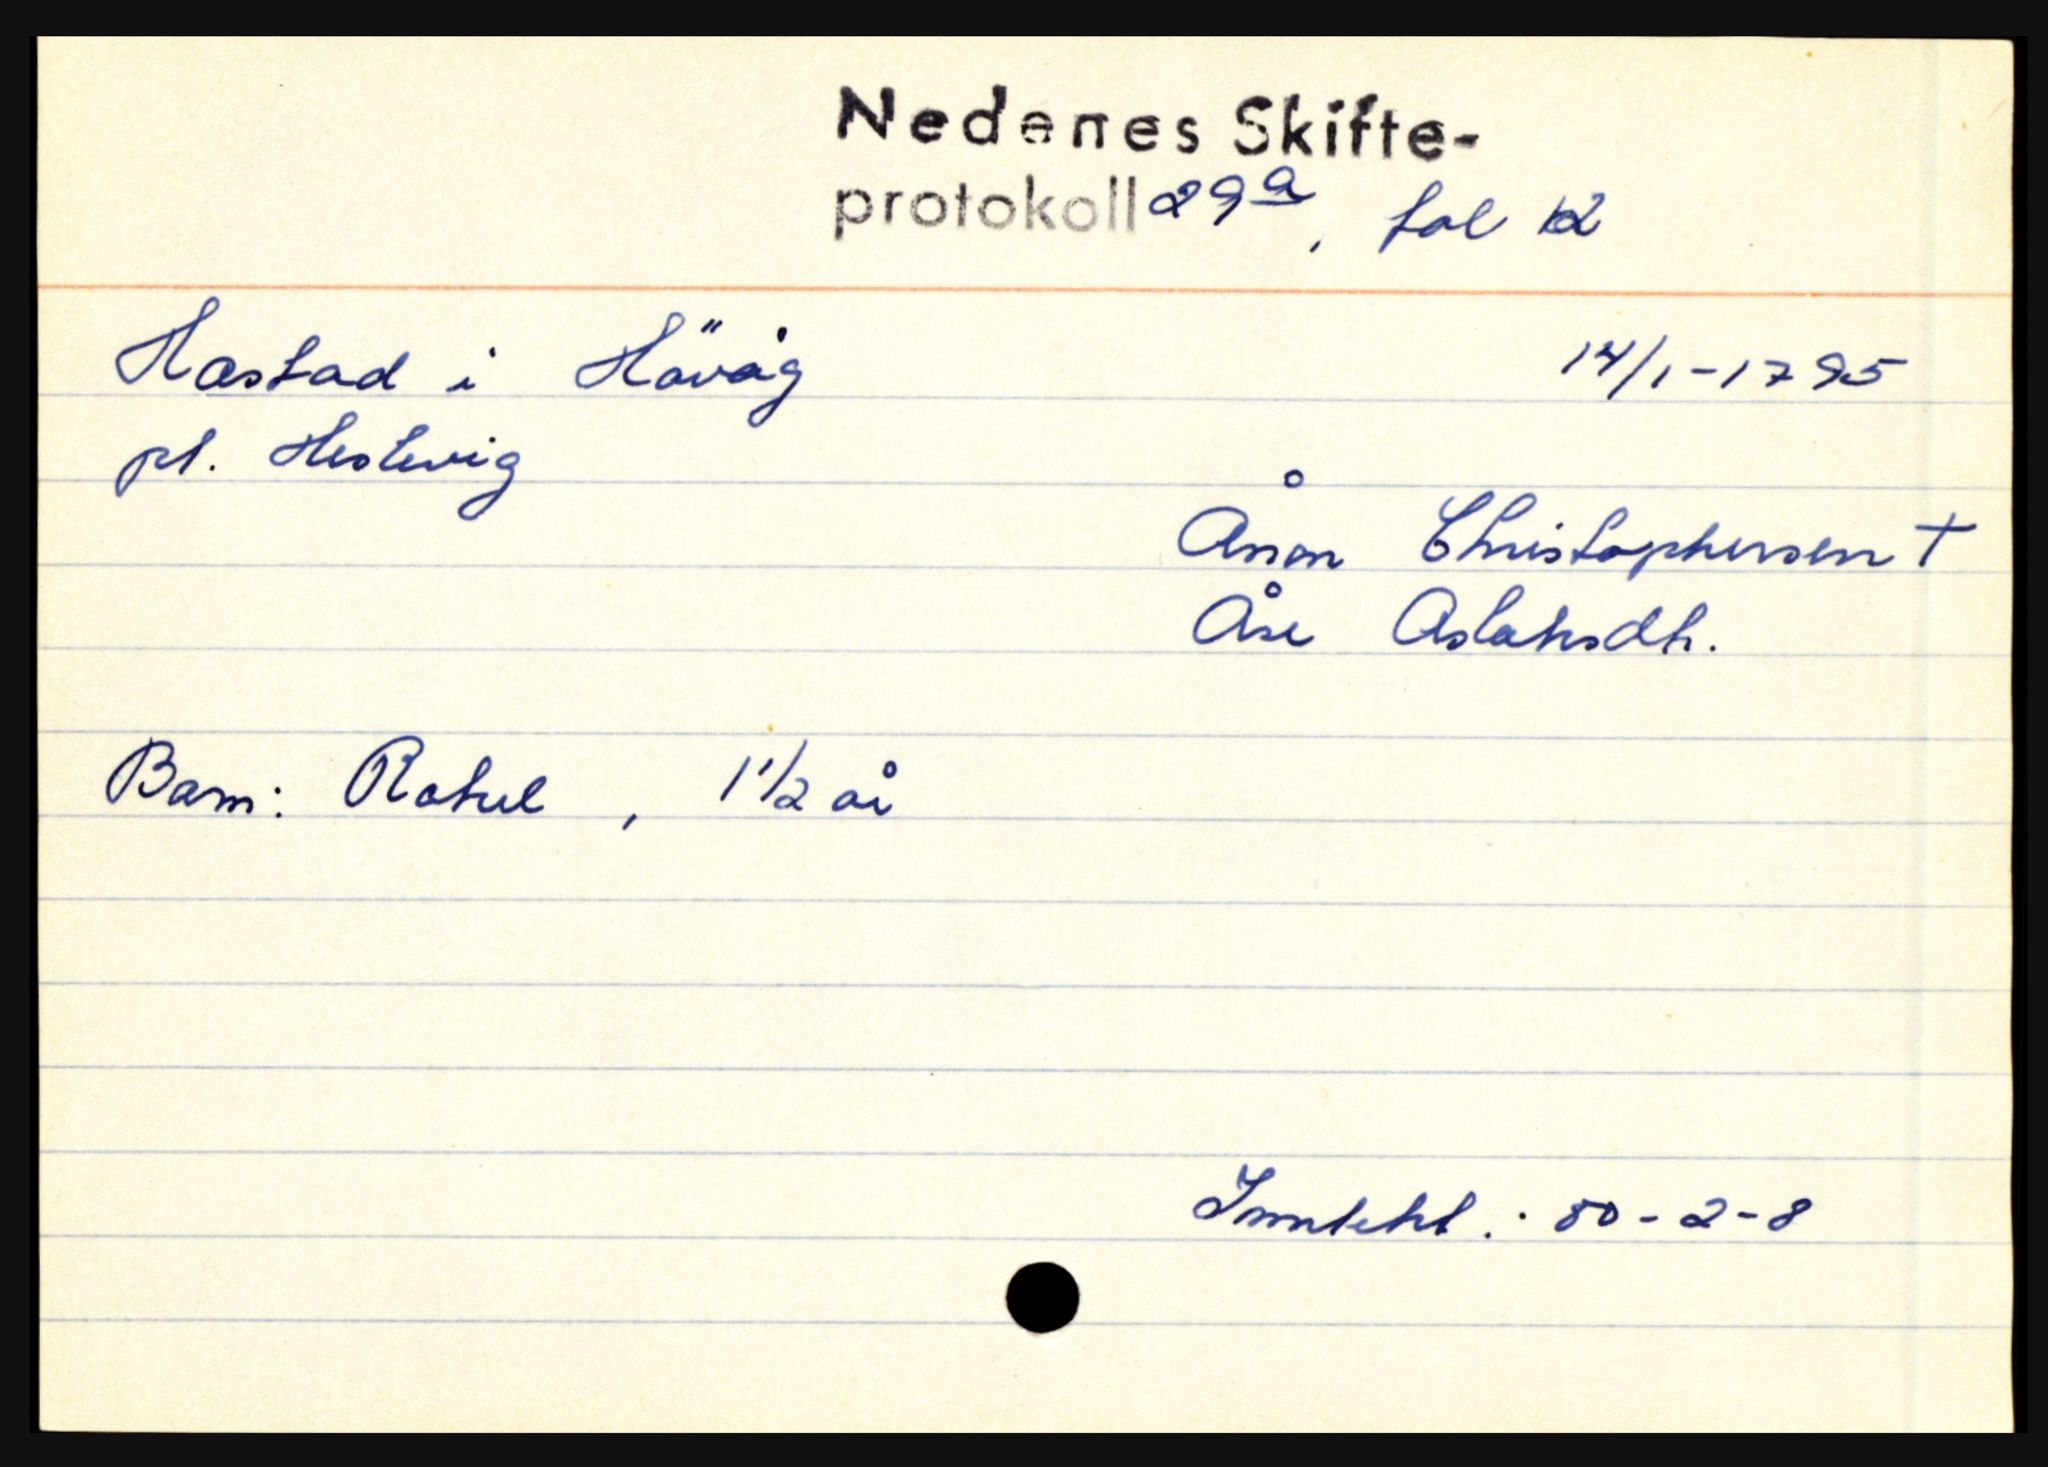 Nedenes Skifte-
protokoll 29a, fol 12
Hæstad i Høvåg 14/1-1795
pl. Hestevig
Ånon Christophersen †
Åse Aslaksdtr.
Barn: Rakel, 1 1/2 år
Inntekt.: 80-2-8